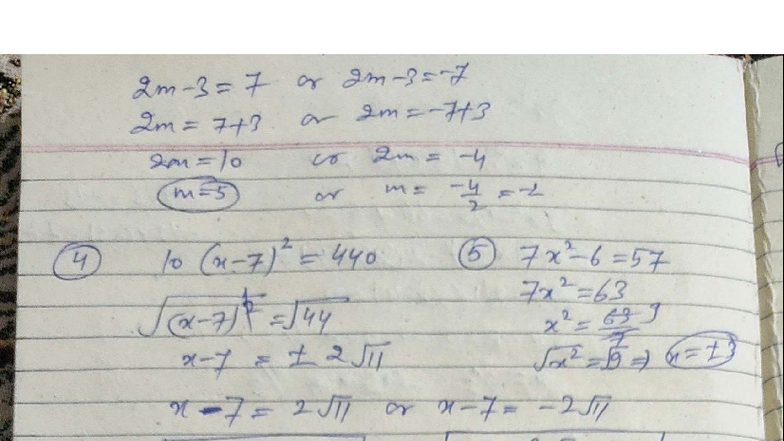 2m-3=7 or 2m-3=-7
2m=7+3 or 2m=-7+3
2m=10 or 2m=-4
m=5 or m=-4/2=-2
④ 10(x-7)²=440
√(x-7)²=√44
x-7=±2√11
x-7=2√11 or x-7=-2√11
⑤ 7x²-6=57
7x²=63
x²=63/7 9
√x²=√9⇒x=±3